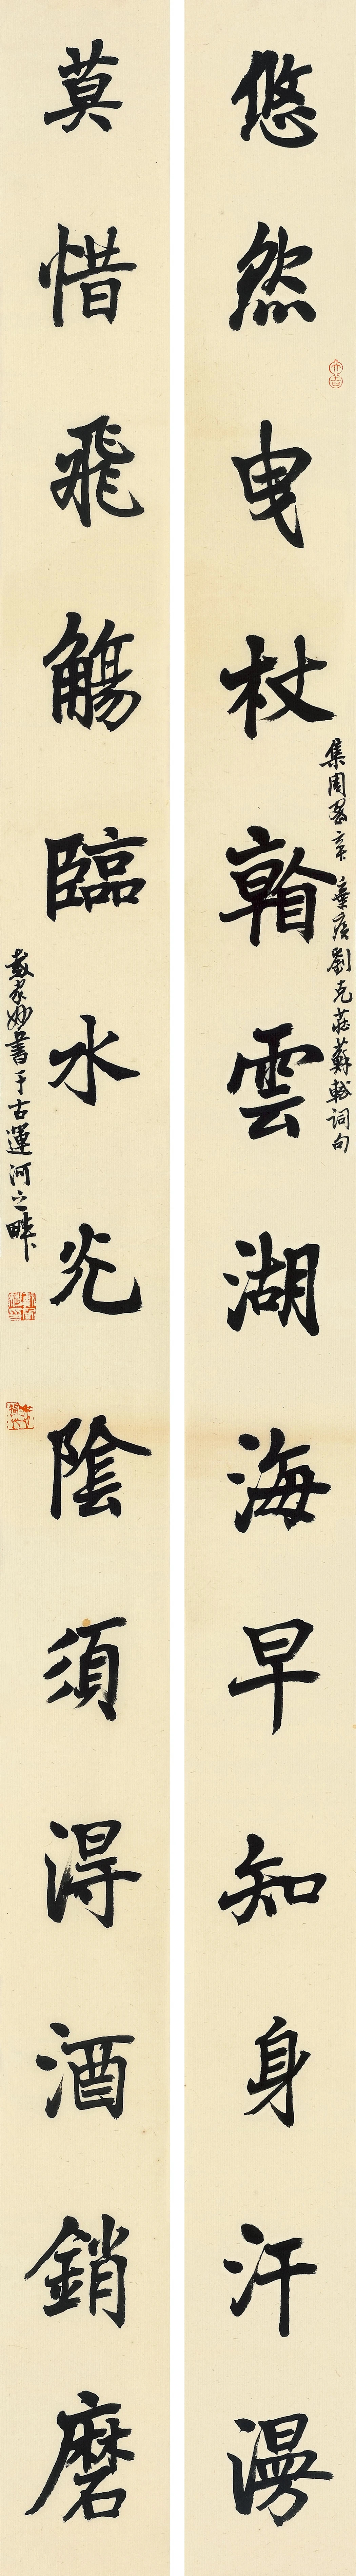 悠然曳杖看雲湖海早知身汗漫
集周密辛棄疾劉克莊蘇軾詞句
莫惜飛觴臨水光陰須得酒銷磨
戴家妙書于古運河之畔